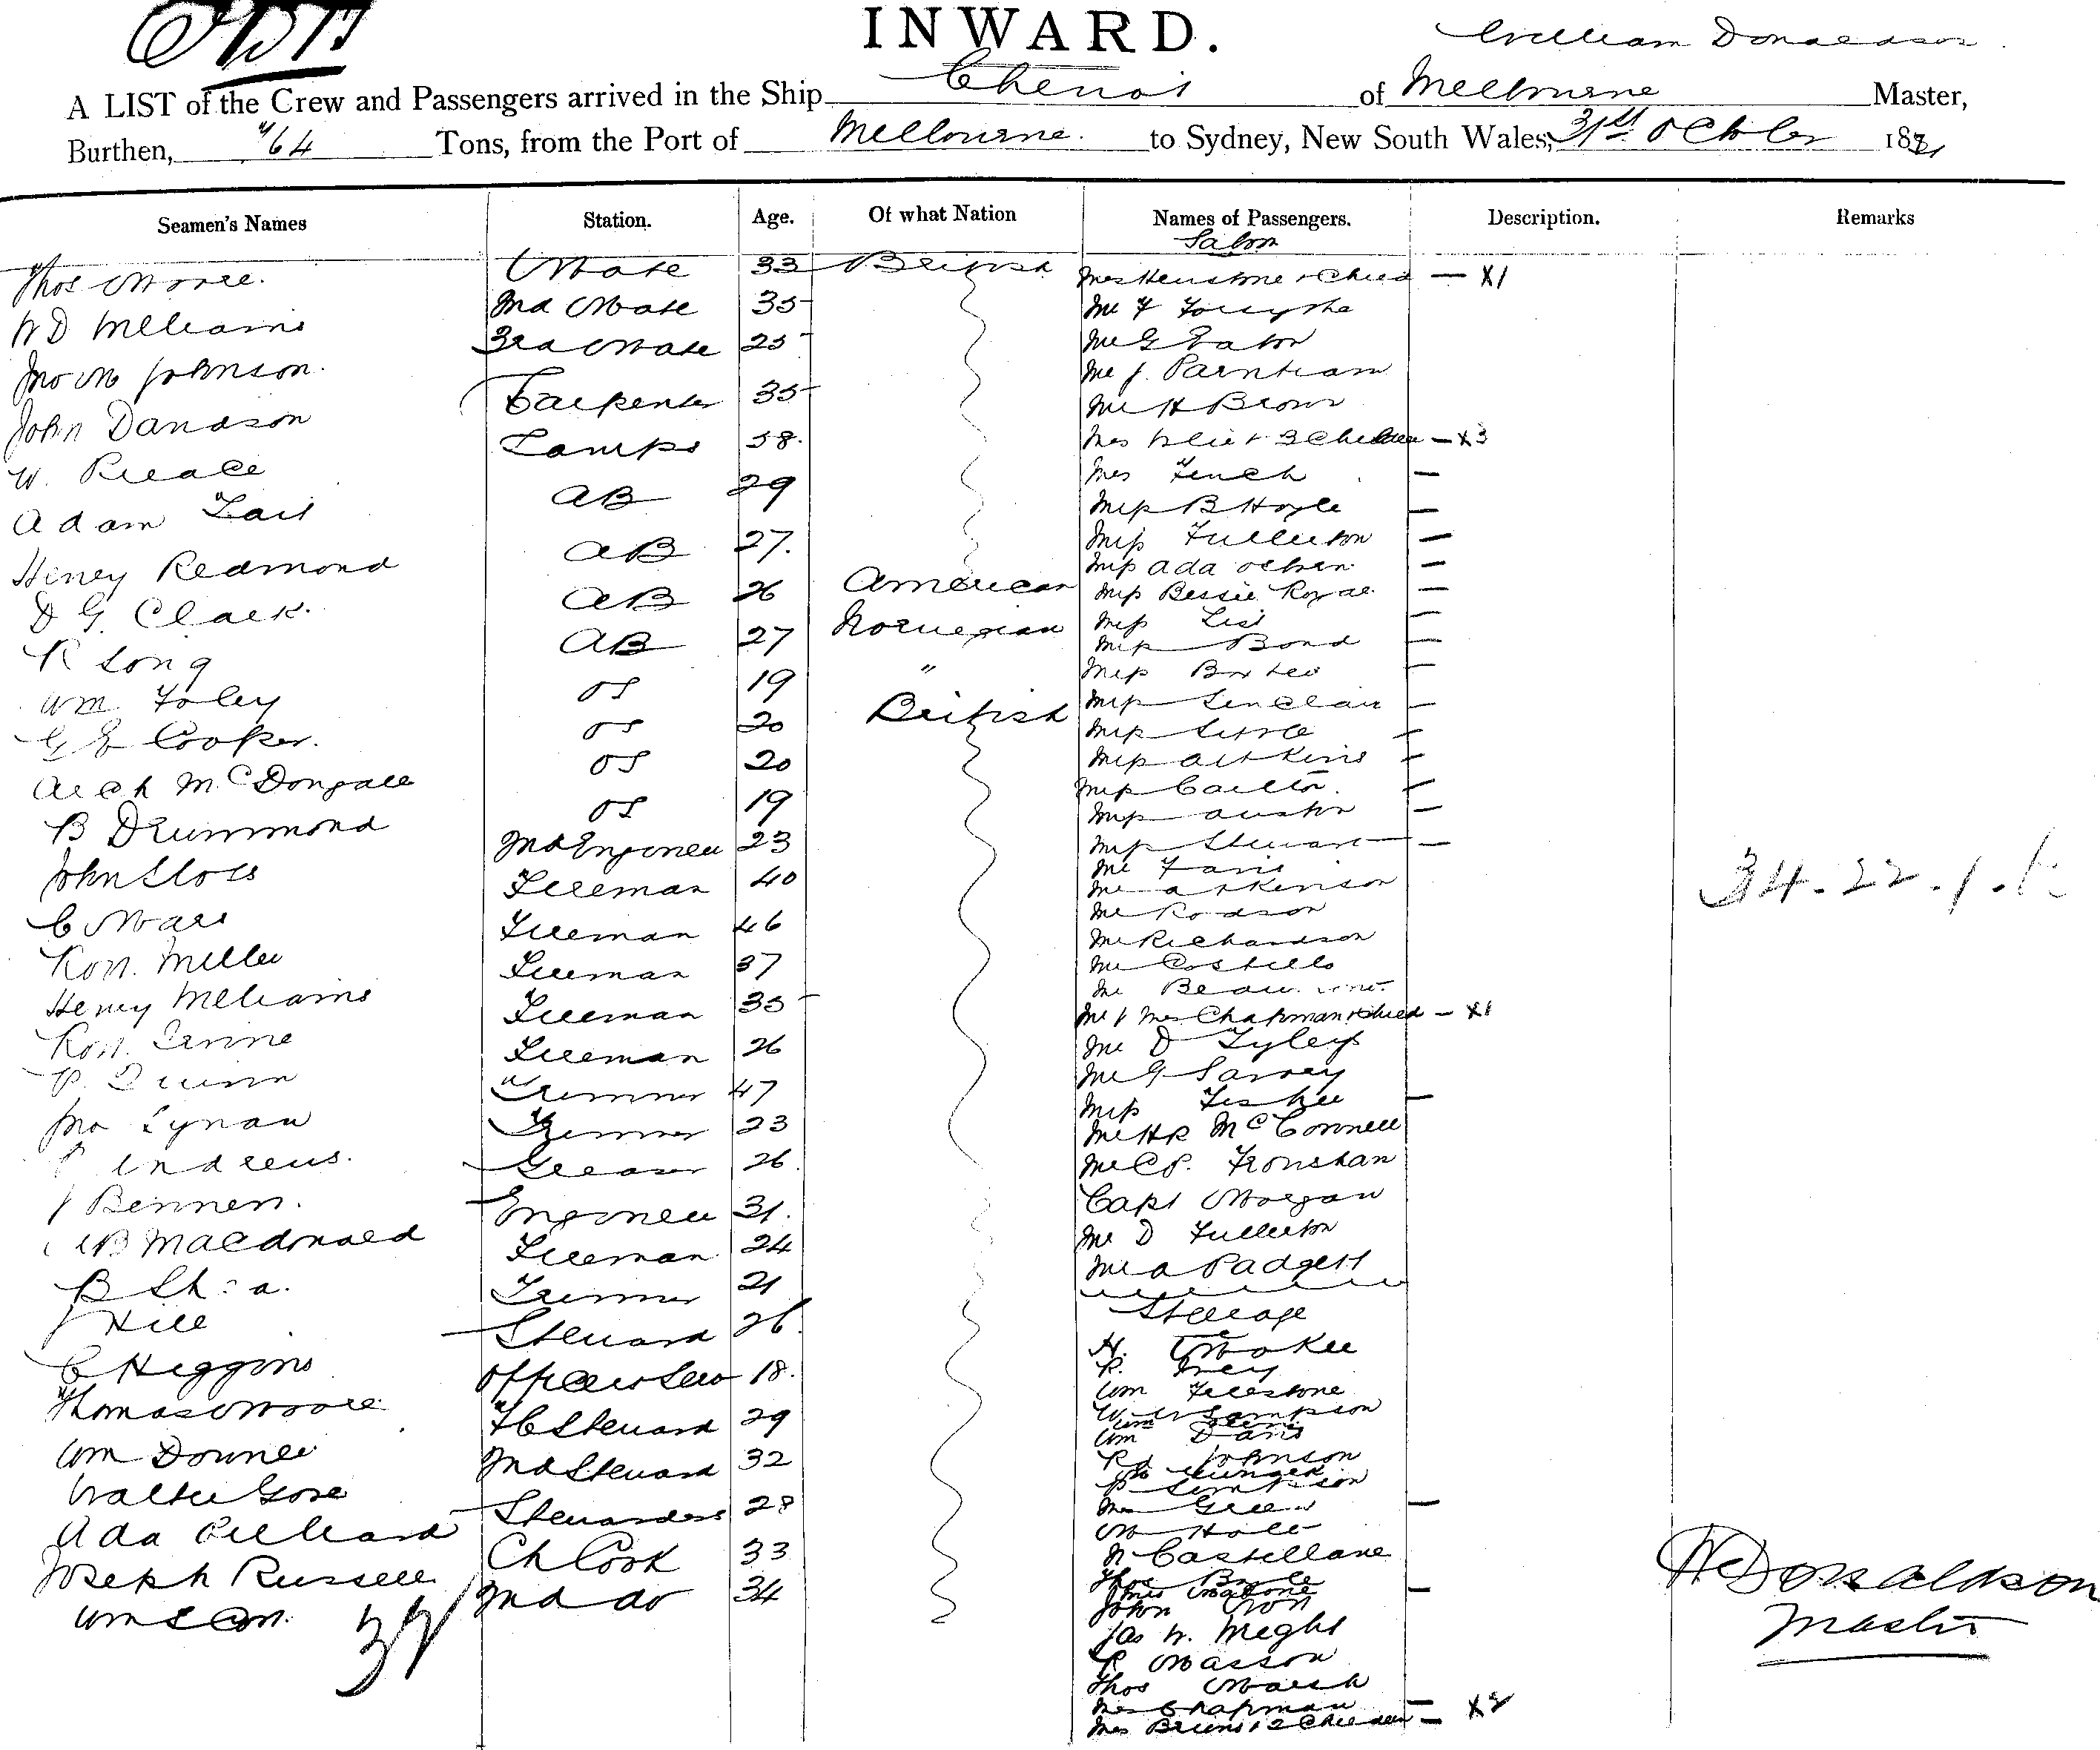 INWARD.
William Donaldson
A LIST of the Crew and Passengers arrived in the Ship Cheviot of Melbourne Master,
Burthen, 764 Tons, from the Port of Melbourne. to Sydney, New South Wales, 31st October 188
Seamen's Names Station. Age. Of what Nation Names of Passengers. Description. Remarks
Salon
Thos Moore. Mate 33 British Mrs Henstone & Child — X1
W D Williams 2nd Mate 35 Mr F Forsythe
Jno M Johnson. 3rd Mate 25 Mr G Eaton
John Davidson Carpenter 35 Mr J. Parnham
W. Peeace Lamps 58. Mr H Brown
Adam Tait AB 29 Mrs & 3 Children — X3
Henry Redmond AB 27. Mrs Finch —
D G. Clark. AB 26 American Miss B Hoyle —
R Long AB 27 Norwegian Miss Fullerton —
Wm. Foley OS 19 " Miss Ada —
G E Cooper. OS 20 British Miss Bessie Royal —
Arch McDougall OS 20 Miss List —
B Drummond OS 19 Miss Bond —
John Sloss 2nd Engineer 23 Miss —
C Marr Fireman 40 Miss Sinclair —
Robt. Miller Fireman 46 Miss Little —
Henry Williams Fireman 37 Miss Aitkins —
Robt. Irvine Fireman 35 Miss —
P. Quinn Fireman 26 Miss Austin —
Jno Lynan Trimmer 47 Miss Stewart —
Andrews. Trimmer 23 Mr
J Bennett. Greaser 26 Mr Atkinson
MacDonald Engineer 31. Mr Rodson
B Shea. Fireman 24 Mr Richardson
J Hill Trimmer 21 Mr Costello
C Higgins Steward 26. Mr
Thomas Moore Officers Serv 18. Mr & Mrs Chapman & Child — X1
Wm Downer F C Steward 29 Mr D Tyleys
Walter Gore 2nd Steward 32 Mr G
Ada Stewardess 28 Miss Fisher —
Joseph Russell Ch Cook 33 Mr HR McConnell
Wm 2nd do 34 Mr C P. Fronshan
Capt Morgan
Mr D Fullerton
Mr A Padgett
Steerage
H.
R. Grey
Wm Firestone
W Sampson
Wm
Wm Davis
Rd Johnson
P Simpson
Mrs Green —
M Hall
N Castellane
Thos
Mrs Malone —
John
Jas W. Meght
R Masson
Thos Marsh
Mrs Chapman —
Mrs & 2 Children — X2
34
34. 22. 1.
W Donaldson
Master